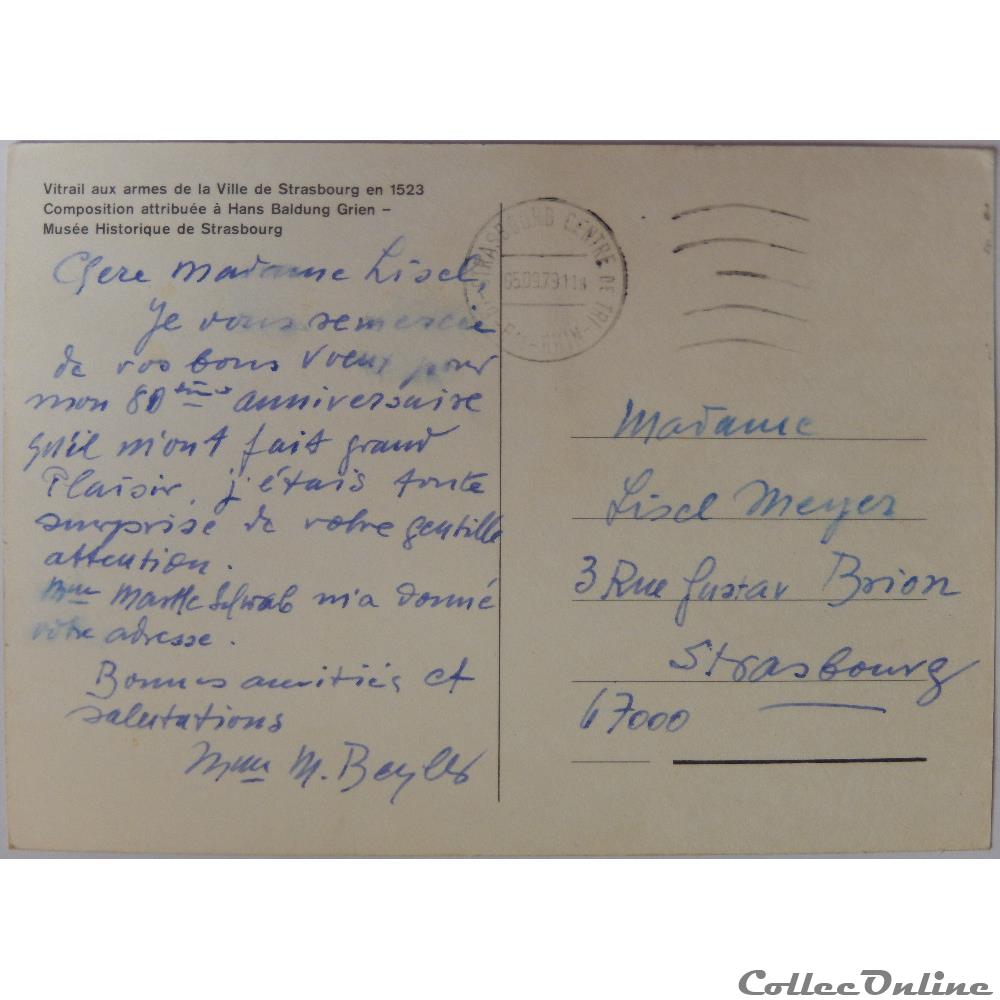 Vitrail aux armes de la Ville de Strasbourg en 1523
Composition attribuée à Hans Baldung Grien –
Musée Historique de Strasbourg
Chere Madame Lisel,
Je vous remercie
de vos bons vœux pour
mon 80 ème anniversaire
qu'il m'ont fait grand
Plaisir, j'étais toute
surprise de votre gentille
attention.
Mme Marthe Schwab m'a donné
votre adresse.
Bonnes amitiés et
salutations
Mme M.
STRASBOURG CENTRE DE TRI
05.09.79 11H
RHIN
Madame
Lisel Meyer
3 Rue Gustav Brion
Strasbourg
67000
CollecOnline